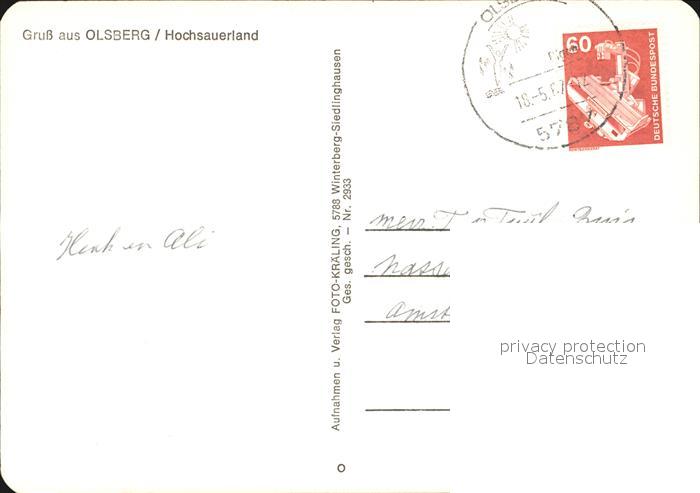 Gruß aus OLSBERG / Hochsauerland
Henk en Ali
Aufnahmen u. Verlag FOTO-KRÄLING, 5788 Winterberg-Siedlinghausen
Ges. gesch. – Nr. 2933
60
DEUTSCHE BUNDESPOST
OLSBE
18.-5.
578
Nasse
Amst
privacy protection
Datenschutz